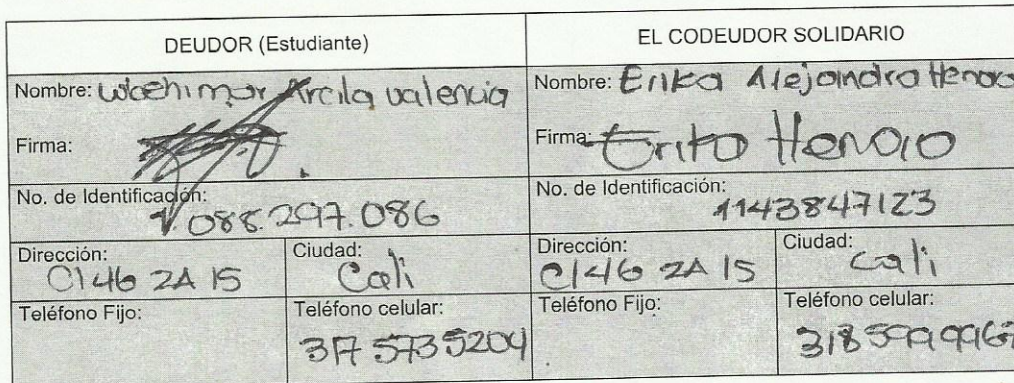 DEUDOR (Estudiante)
EL CODEUDOR SOLIDARIO
Nombre: Arcila valencia
Nombre: Erika Alejandra Henao
Firma:
Firma: Erika Henao
No. de Identificación:
1.088.297.086
No. de Identificación:
1143847123
Dirección:
Cl 46 2A 15
Ciudad:
Cali
Dirección:
Cl 46 2A 15
Ciudad:
Cali
Teléfono Fijo:
Teléfono celular:
317 5735204
Teléfono Fijo:
Teléfono celular:
318 5999967